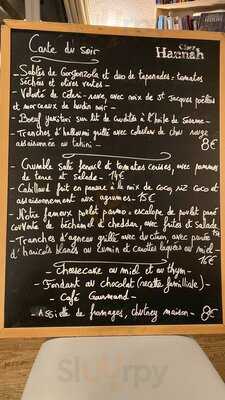 Carte du soir
Chez
Hannah
- Sablés de Gorgonzola et duo de tapenades - tomates
séchées et olives vertes -
- Velouté de céleri-rave avec noix de St Jacques poêlées
et morceaux de boudin noir -
- Boeuf yakitori sur lit de crudités à l'huile de Sésame -
- Tranches d'halloumi grillé avec coleslaw de chou rouge
assaisonné au tahini -
8€
- Crumble Salé fenouil et tomates cerises, avec pommes
de terre et Salade - 14€
- Cabillaud en panure à la noix de coco, riz coco et
assaisonnement aux agrumes - 15€
- Notre fameux poulet parmo = escalope de poulet pané
couverte de béchamel et cheddar, avec frites et Salade
- Tranches d'agneau grillé avec purée
d'haricots blancs au cumin et carottes laquées au miel -
16€
- Cheesecake au miel et au thym -
- Fondant au chocolat (recette familiale) -
- Café Gourmand -
- Assiette de fromages, chutney maison -
8€
Sluurpy